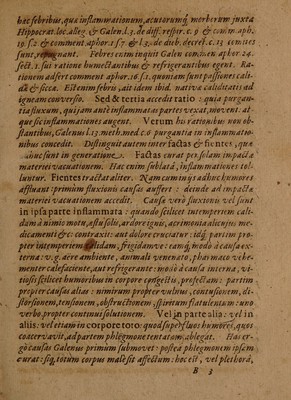 hæc febribus, qua inflammationum, acutorumq́ morborum juxta
Hippocrat. loc. alleg. & Galen. l. 3. de diff. respir. c. 9 & com. aph.
19. s. 2 & comment. aphor. 1. s 7 & l. 3. de dieb. decret. c. 13 comites
sunt, repugnant. Febres enim inquit Galen comment aphor 24.
sect. 1. sui ratione humectantibus & refrigerantibus egent. Ra-
tionem adfert comment aphor. 16. s. 1. quoniam sunt passiones cali-
dæ & siccæ. Est enim febris, ait idem ibid. nativæ caliditatis ad
igneam conversio. Sed & tertia accedit ratio: quia purgan-
tia fluxum, qui jam ante inflammatas partes vexat, movent: at-
que sic inflammationes augent. Verùm his rationibus non ob-
stantibus, Galenus l. 13. meth. med. c. 6 purgantia in inflammatio-
nibus concedit. Distinguit autem inter factas & fientes, quæ
adhuc sunt in generatione. Factas curat per solam impactæ
materiei vacuationem. Hac enim sublata, inflammationes tol-
luntur. Fientes tractat aliter. Nam cum in ijs adhuc humores
affluant: primum fluxionis causas auffert: deinde ad impactæ
materiei vacuationem accedit. Causæ verò fluxionis vel sunt
in ipsa parte inflammata: quando scilicet intemperiem cali-
dam à nimio motu, aestu solis, ardore ignis, acrimonia alicujus me-
dicamenti & c. contraxit: aut dolore cruciatur: idq́; partim pro-
pter intemperiem calidam, frigidamve: eamq́, modò à causa ex-
terna: v. g. aere ambiente, animali venenato, pharmaco vehe-
menter calefaciente, aut refrigerante: modò à causa interna, vi-
tiosis scilicet humoribus in corpore congestis, profectam: partim
propter causas alias: nimirum propter vulnus, contusionem, di-
storsionem, tensionem, obstructionem, spiritum flatulentum: uno
verbo, propter continui solutionem. Vel in parte alia: vel in
aliis: vel etiam in corpore toto: quod superfluos humores, quos
coacervavit, ad partem phlegmone tentatam, ablegat. Has er-
gò causas Galenus primum submovet: postea phlegmonem ipsam
curat: siq́; totum corpus malè sit affectum: hoc est, vel plethora,
B 3